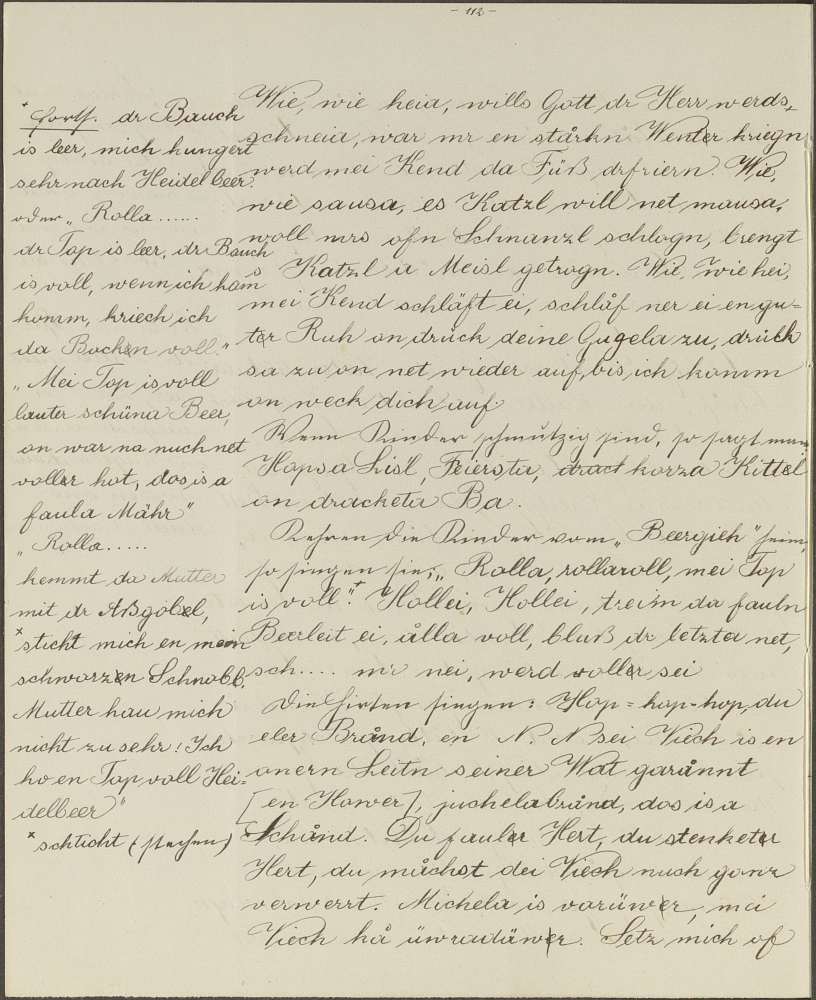 - 112 -
Wie, wie heia, wills Gott dr Herr werds
schneia, war mr en stårkn Wenter kriegn
werd mei Kend da Füß drfriern. Wie,
wie sausa, es Katzl will net mausa,
woll mrs ofn Schnanzl schlogn, brengt
s Katzl a Meisl getrogn. Wie, wie hei,
mei Kend schläft ei, schlåf ner ei en gu=
ter Ruh on drück deine Gugela zu, drück
sa zu on net wieder auf, bis ich komm
on weck dich auf.
Wenn Kinder schmutzig sind, so sagt man
Hopsa Lisl, Feiersta, korza Kittel
on dracketa Ba.
Kehren die Kinder vom „Beergieh" heim,
so singen sie: „Rolla, rollaroll, mei Top
is voll".+ Hollei, Hollei, treim da fauln
Beerleit ei, ålla voll, bluß dr letzta net,
sch.... mr nei, werd voller sei
Die Hirten singen: Hop=hop-hop, du
eler Brånd, en N. N sei Viech is en
onern Leitn seiner Wat garånnt
[en Hower], juchelabrånd, dos is a
Schånd. Du fauler Hert, du stenketer
Hert, du måchst dei Viech nuch gonz
verwerrt. Michela is vorüwer, mei
Viech hå üwradüwer. Setz mich of
+ Forts. dr Bauch
is leer, mich hungert
sehr nach Heidelbeer.
oder „Rolla......
dr Top is leer, dr Bauch
is voll, wenn ich ham
komm, kriech ich
da Backn voll."
„Mei Top is voll
lauter schüna Beer,
on war na nuch net
voller hot, dos is a
faula Mähr"
„Rolla.....
kemmt da Mutter
mit dr Aßgobel,
x sticht mich en mein
schworzen Schnobl.
Mutter hau mich
nicht zu sehr! Ich
ho en Top voll Hei-
delbeer"
x schticht (stechen)